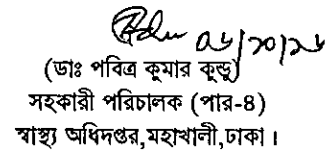 ০৫/১০/১৬
(ডাঃ পবিত্র কুমার কুন্ডু)
সহকারী পরিচালক (পার-৪)
স্বাস্থ্য অধিদপ্তর,মহাখালী,ঢাকা।